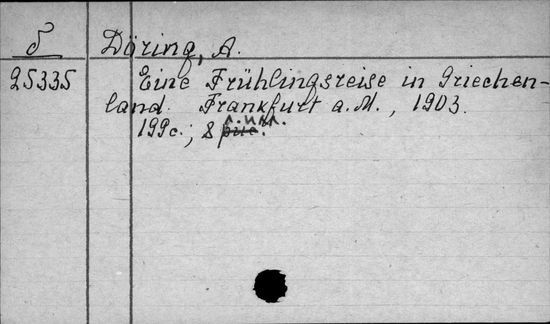 δ
Döring, A.
25335 Eine Frühlingsreise in Griechen-
land. Frankfurt a.M., 1903.
199c.; 8 л. илл.